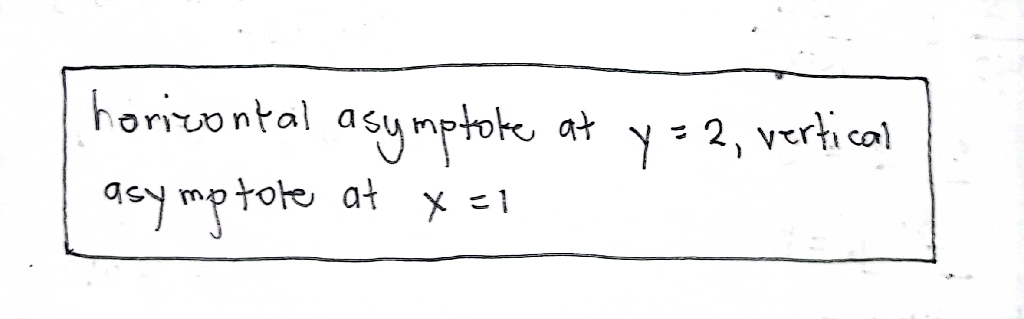 horizontal asymptote at y = 2, vertical
asymptote at x = 1